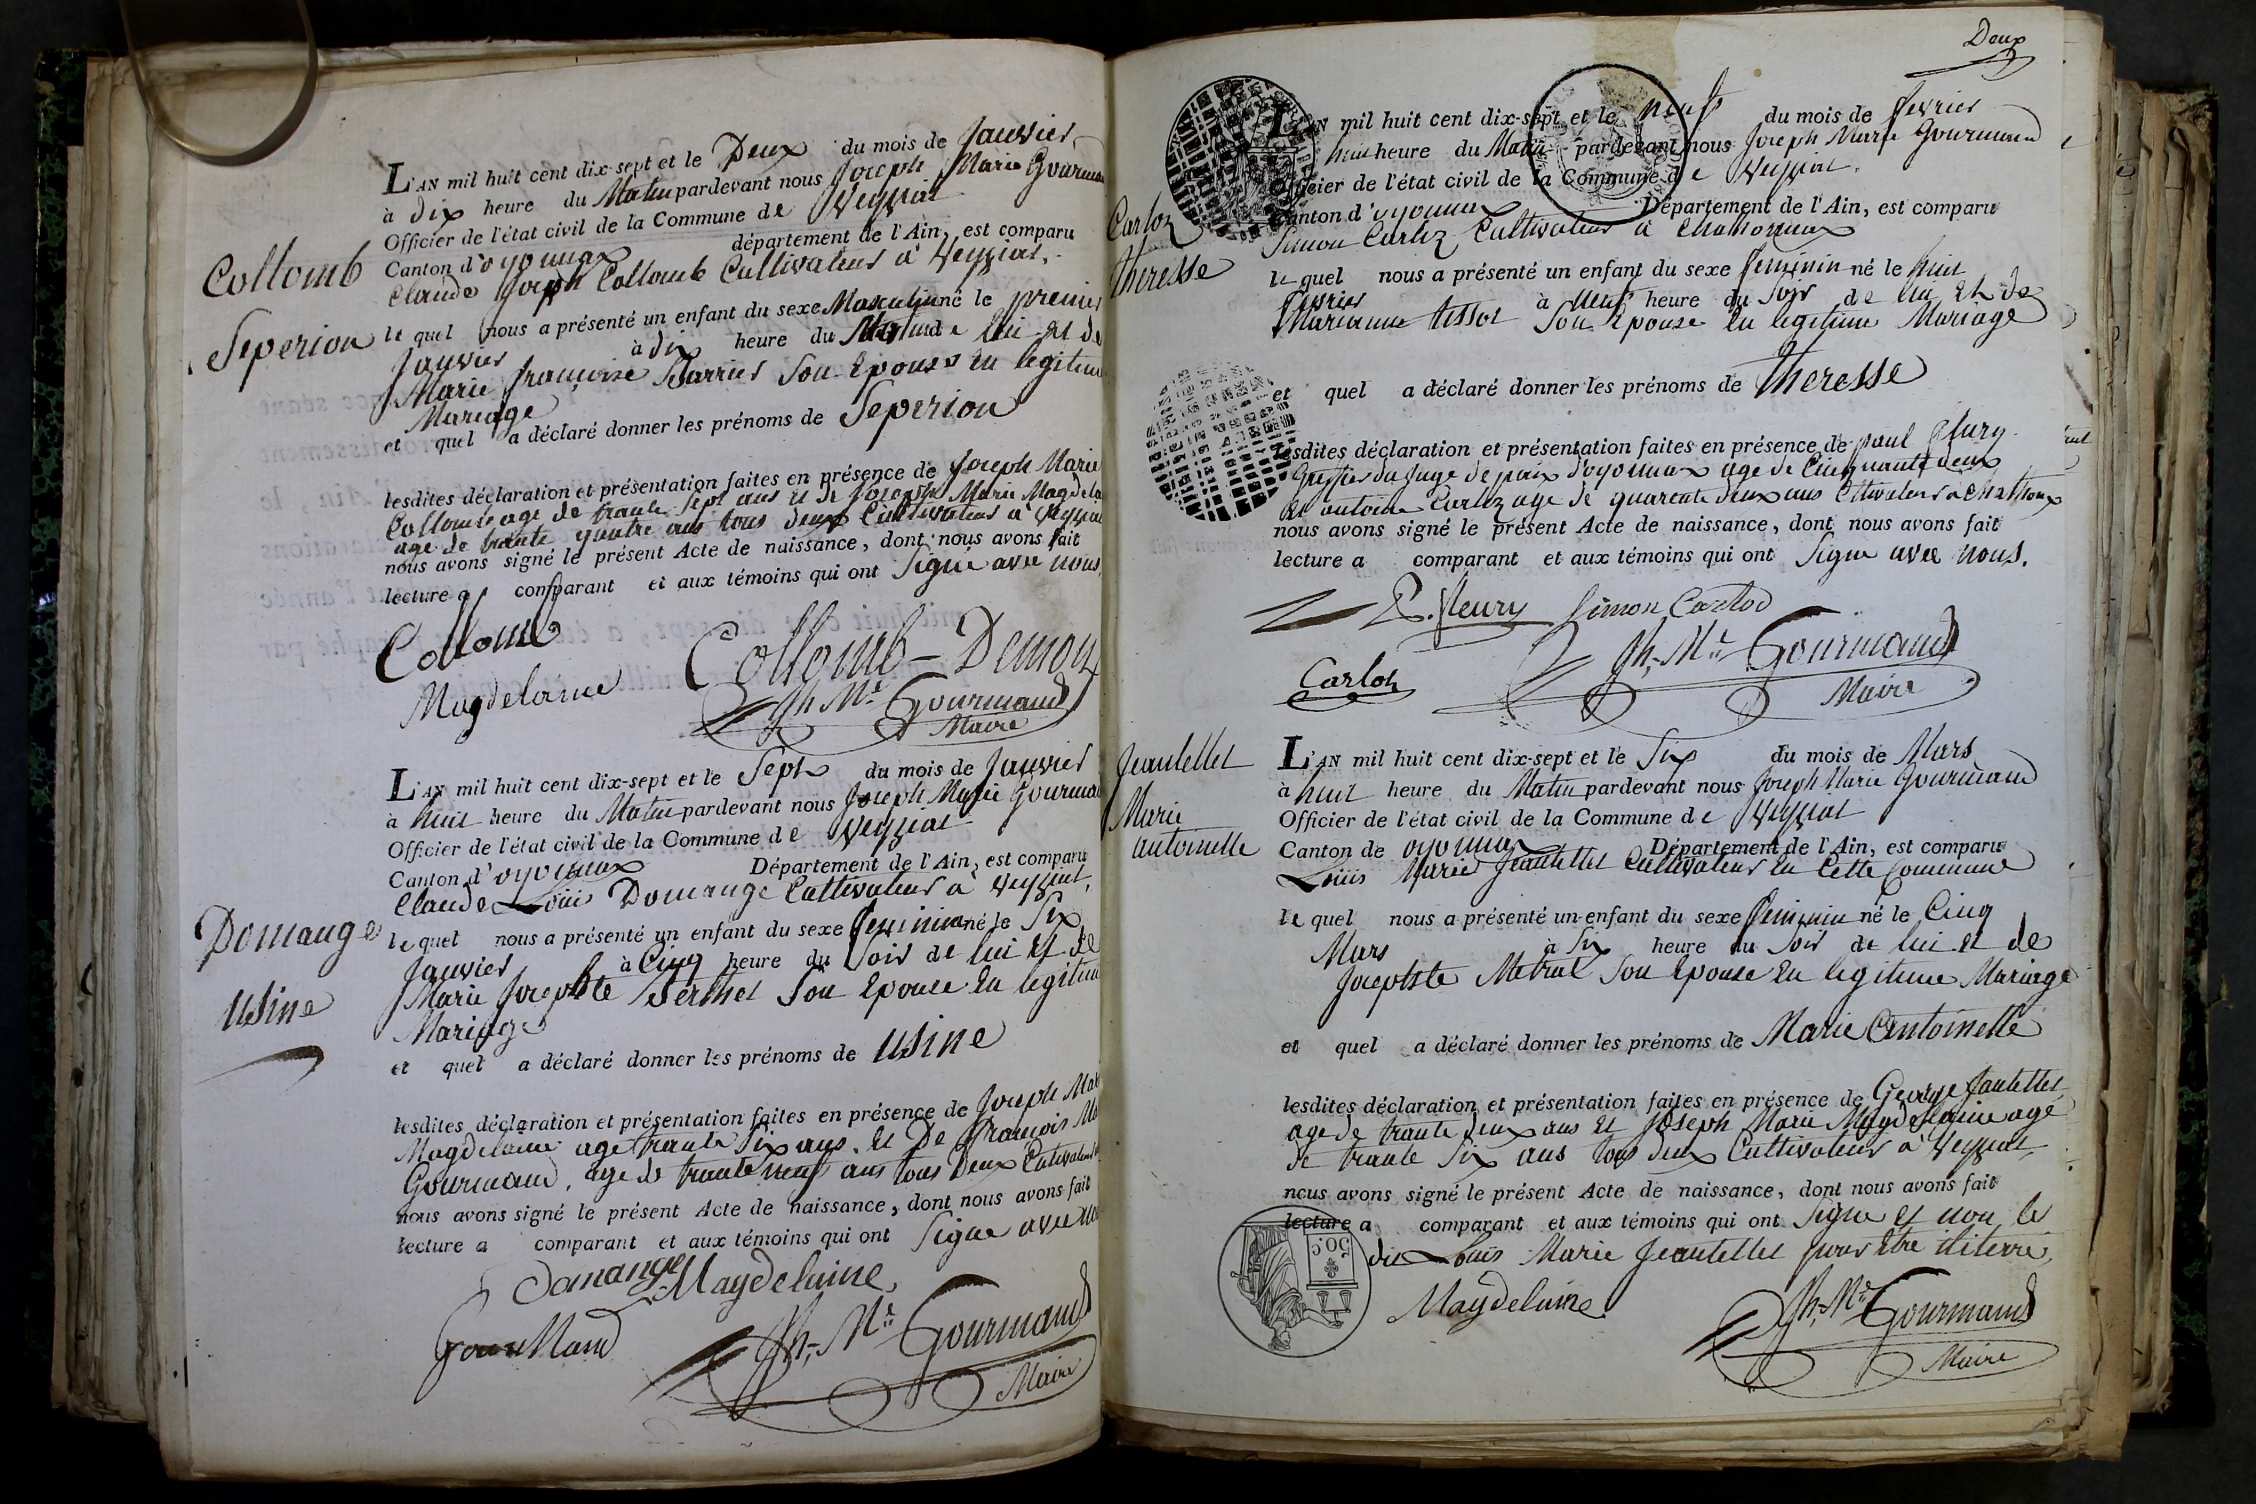 Collomb
Seperion
L'AN mil huit cent dix-sept et le Deux du mois de Janvier
à dix heure du Matin pardevant nous Joseph Marie Gourmand
Officier de l'état civil de la Commune de Veyziat
Canton d'oyonnax département de l'Ain, est comparu
Claude Joseph Collomb Cultivateur à Veyziat.
le quel nous a présenté un enfant du sexe Masculin né le premier
Janvier à dix heure du Matin de lui et de
Marie françoise Barrier Son Epouse en legitime
Mariage
et quel a déclaré donner les prénoms de Seperion
lesdites déclaration et présentation faites en présence de Joseph Marie
Collomb age de trante Sept ans et de Joseph Marie Magdelaine
age de trante quatre ans tous deux Cultivateur à Veyziat
nous avons signé le présent Acte de naissance, dont nous avons fait
lecture a comparant et aux témoins qui ont Signé avec nous.
Collomb
Collomb-Demon
Magdelaine
Jh Me Gourmand
Maire
Domange
Usine
L'AN mil huit cent dix-sept et le Sept du mois de Janvier
à huit heure du Matin pardevant nous Joseph Marie Gourmand
Officier de l'état civil de la Commune de Veyziat
Canton d'oyonnax Département de l'Ain, est comparu
Claude Louis Domange Cultivateur à Veyziat,
le quel nous a présenté un enfant du sexe feminin né le Six
Janvier à Cinq heure du Soir de lui et de
Marie Josephte Berthet Son Epouse en legitime
Mariage
et quel a déclaré donner les prénoms de Usine
lesdites déclaration et présentation faites en présence de Joseph Marie
Magdelaine age trante Six ans. et De François
Gourmand, age de trante neuf ans tous Deux Cutivateur
nous avons signé le présent Acte de naissance, dont nous avons fait
lecture a comparant et aux témoins qui ont Signe avec nous
Domange Magdelaine
Gourmand
Jh. Me Gourmand
Maire
Deux
Carloz
Theresse
L'AN mil huit cent dix-sept et le neuf du mois de fevrier
huit heure du Matin pardevant nous Joseph Marie Gourmand
Officier de l'état civil de la Commune de Veyziat.
Canton d'oyonnax Département de l'Ain, est comparu
Simon Carloz Cultivateur à Chatonnax
le quel nous a présenté un enfant du sexe feminin né le huit
fevrier à neuf heure du Soir de lui et de
Marianne tissot Son Epouse en legitime Mariage
et quel a déclaré donner les prénoms de Theresse
lesdites déclaration et présentation faites en présence de paul flury
Greffier du Juge de paix d'oyonnax age de Cinquante deux
et antoine Carloz age de quarente deux ans Cltivateur a Chattonax
nous avons signé le présent Acte de naissance, dont nous avons fait
lecture a comparant et aux témoins qui ont Signe avec nous.
P. fleury Simon Carloz
Carloz
Jh. Me Gourmand
Maire
Jeantellet
Marie
antoinette
L'AN mil huit cent dix-sept et le Six du mois de Mars
à huit heure du Matin pardevant nous Joseph Marie Gourmand
Officier de l'état civil de la Commune de Veyziat
Canton de oyonnax Département de l'Ain, est comparu
Louis Marie Jeantellet Cultivateur en Cette Commune
le quel nous a présenté un enfant du sexe feminin né le Cinq
Mars à Six heure du Soir de lui et de
Josephte Metral Son Epouse en legitime Mariage
et quel a déclaré donner les prénoms de Marie Antoinette
lesdites déclaration et présentation faites en présence de George Jantellet
age de trante deux ans et Joseph Marie Magdelaine age
de trante Six ans tous deux Cultivateur à Veyziat,
nous avons signé le présent Acte de naissance, dont nous avons fait
lecture a comparant et aux témoins qui ont Signe et non le
dit Louis Marie Jeantellet pour être iliterré,
50 C
Magdelaine
Jh. Me Gourmand
Maire